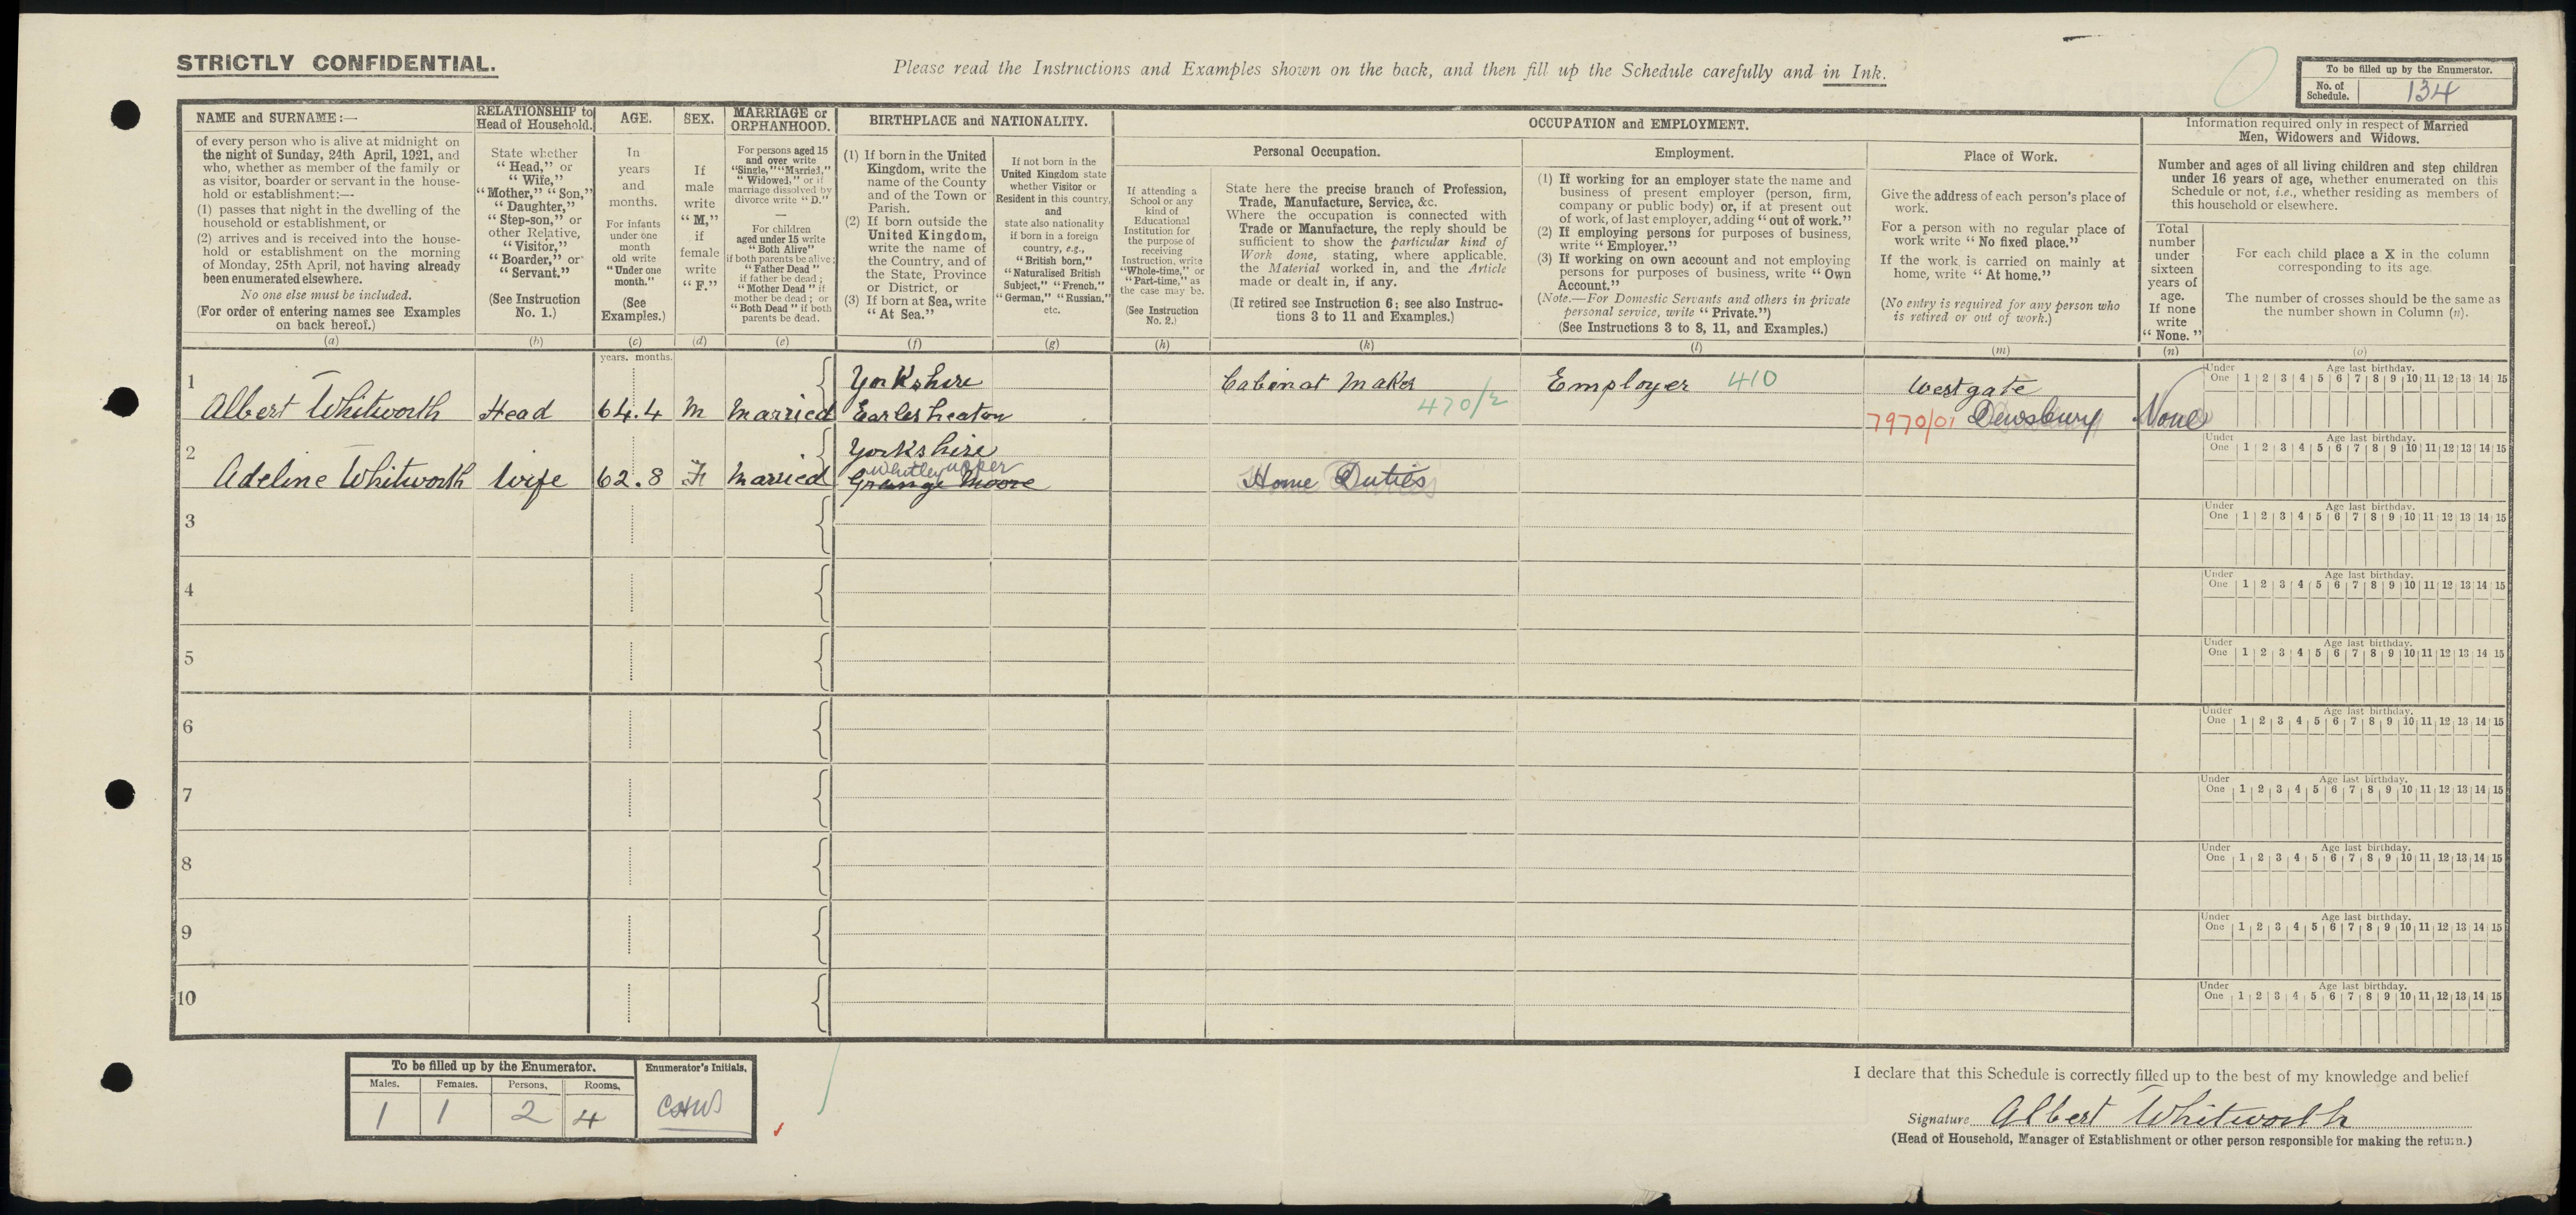 STRICTLY CONFIDENTIAL.
Please read the Instructions and Examples shown on the back, and then fill up the Schedule carefully and in Ink.
To be filled up by the Enumerator.
No. of Schedule. 134
NAME and SURNAME:—
of every person who is alive at midnight on
the night of Sunday, 24th April, 1921, and
who, whether as member of the family or
as visitor, boarder or servant in the house-
hold or establishment:—
(1) passes that night in the dwelling of the
household or establishment, or
(2) arrives and is received into the house-
hold or establishment on the morning
of Monday, 25th April, not having already
been enumerated elsewhere.
No one else must be included.
(For order of entering names see Examples
on back hereof.)
(a)
RELATIONSHIP to
Head of Household.
State whether
"Head," or
"Wife,"
"Mother," "Son,"
"Daughter,"
"Step-son," or
other Relative,
"Visitor,"
"Boarder," or
"Servant."
(See Instruction
No. 1.)
(b)
AGE.
In
years
and
months.
For infants
under one
month
old write
"Under one
month."
(See
Examples.)
(c)
SEX.
If
male
write
"M,"
if
female
write
"F."
(d)
MARRIAGE or
ORPHANHOOD.
For persons aged 15
and over write
"Single," "Married,"
"Widowed," or if
marriage dissolved by
divorce write "D."
—
For children
aged under 15 write
"Both Alive"
if both parents be alive;
"Father Dead"
if father be dead;
"Mother Dead" if
mother be dead; or
"Both Dead" if both
parents be dead.
(e)
BIRTHPLACE and NATIONALITY.
(1) If born in the United
Kingdom, write the
name of the County
and of the Town or
Parish.
(2) If born outside the
United Kingdom,
write the name of
the Country, and of
the State, Province
or District, or
(3) If born at Sea, write
"At Sea."
(f)
If not born in the
United Kingdom state
whether Visitor or
Resident in this country,
and
state also nationality
if born in a foreign
country, e.g.,
"British born,"
"Naturalised British
Subject," "French,"
"German," "Russian,"
etc.
(g)
OCCUPATION and EMPLOYMENT.
If attending a
School or any
kind of
Educational
Institution for
the purpose of
receiving
Instruction, write
"Whole-time," or
"Part-time," as
the case may be.
(See Instruction
No. 2.)
(h)
Personal Occupation.
State here the precise branch of Profession,
Trade, Manufacture, Service, &c.
Where the occupation is connected with
Trade or Manufacture, the reply should be
sufficient to show the particular kind of
Work done, stating, where applicable,
the Material worked in, and the Article
made or dealt in, if any.
(If retired see Instruction 6; see also Instruc-
tions 3 to 11 and Examples.)
(k)
Employment.
(1) If working for an employer state the name and
business of present employer (person, firm,
company or public body) or, if at present out
of work, of last employer, adding "out of work."
(2) If employing persons for purposes of business,
write "Employer."
(3) If working on own account and not employing
persons for purposes of business, write "Own
Account."
(Note.—For Domestic Servants and others in private
personal service, write "Private.")
(See Instructions 3 to 8, 11, and Examples.)
(l)
Place of Work.
Give the address of each person's place of
work.
For a person with no regular place of
work write "No fixed place."
If the work is carried on mainly at
home, write "At home."
(No entry is required for any person who
is retired or out of work.)
(m)
Information required only in respect of Married
Men, Widowers and Widows.
Number and ages of all living children and step children
under 16 years of age, whether enumerated on this
Schedule or not, i.e., whether residing as members of
this household or elsewhere.
Total
number
under
sixteen
years of
age.
If none
write
"None."
(n)
For each child place a X in the column
corresponding to its age.
The number of crosses should be the same as
the number shown in Column (n).
(o)
years. months.
1
Albert Whitworth Head 64.4 M Married Yorkshire
Earlesheaton
Cabinat Maker 470/2 Employer 410 Westgate
7970/01 Dewsbury None
Under One Age last birthday. 1 2 3 4 5 6 7 8 9 10 11 12 13 14 15
2
Adeline Whitworth Wife 62.8 F Married Yorkshire
Whitley Upper
Grange Moore
Home Duties
Under One Age last birthday. 1 2 3 4 5 6 7 8 9 10 11 12 13 14 15
3
Under One Age last birthday. 1 2 3 4 5 6 7 8 9 10 11 12 13 14 15
4
Under One Age last birthday. 1 2 3 4 5 6 7 8 9 10 11 12 13 14 15
5
Under One Age last birthday. 1 2 3 4 5 6 7 8 9 10 11 12 13 14 15
6
Under One Age last birthday. 1 2 3 4 5 6 7 8 9 10 11 12 13 14 15
7
Under One Age last birthday. 1 2 3 4 5 6 7 8 9 10 11 12 13 14 15
8
Under One Age last birthday. 1 2 3 4 5 6 7 8 9 10 11 12 13 14 15
9
Under One Age last birthday. 1 2 3 4 5 6 7 8 9 10 11 12 13 14 15
10
Under One Age last birthday. 1 2 3 4 5 6 7 8 9 10 11 12 13 14 15
To be filled up by the Enumerator.
Enumerator's Initials.
Males. Females. Persons. Rooms.
1 1 2 4
I declare that this Schedule is correctly filled up to the best of my knowledge and belief
Signature Albert Whitworth
(Head of Household, Manager of Establishment or other person responsible for making the return.)